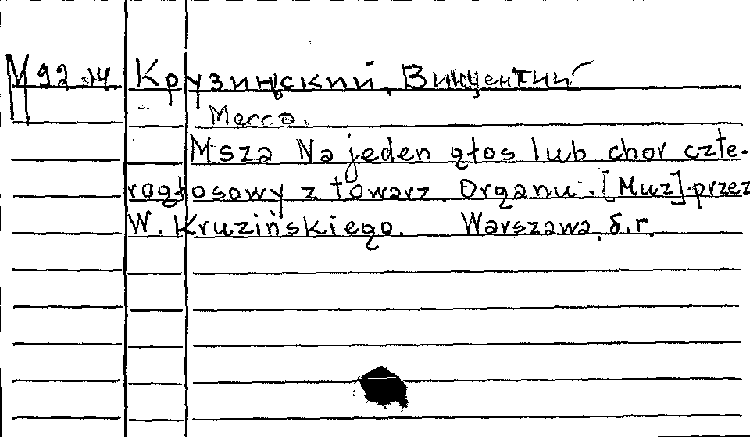 М 92.14 Крузинский, Винцентий
Месса.
Msza Na jeden głos lub chor czte-
rogłosowy z towarz. Organu. [Muz] przez
W. Kruzińskiego. Warszawa, б.г.